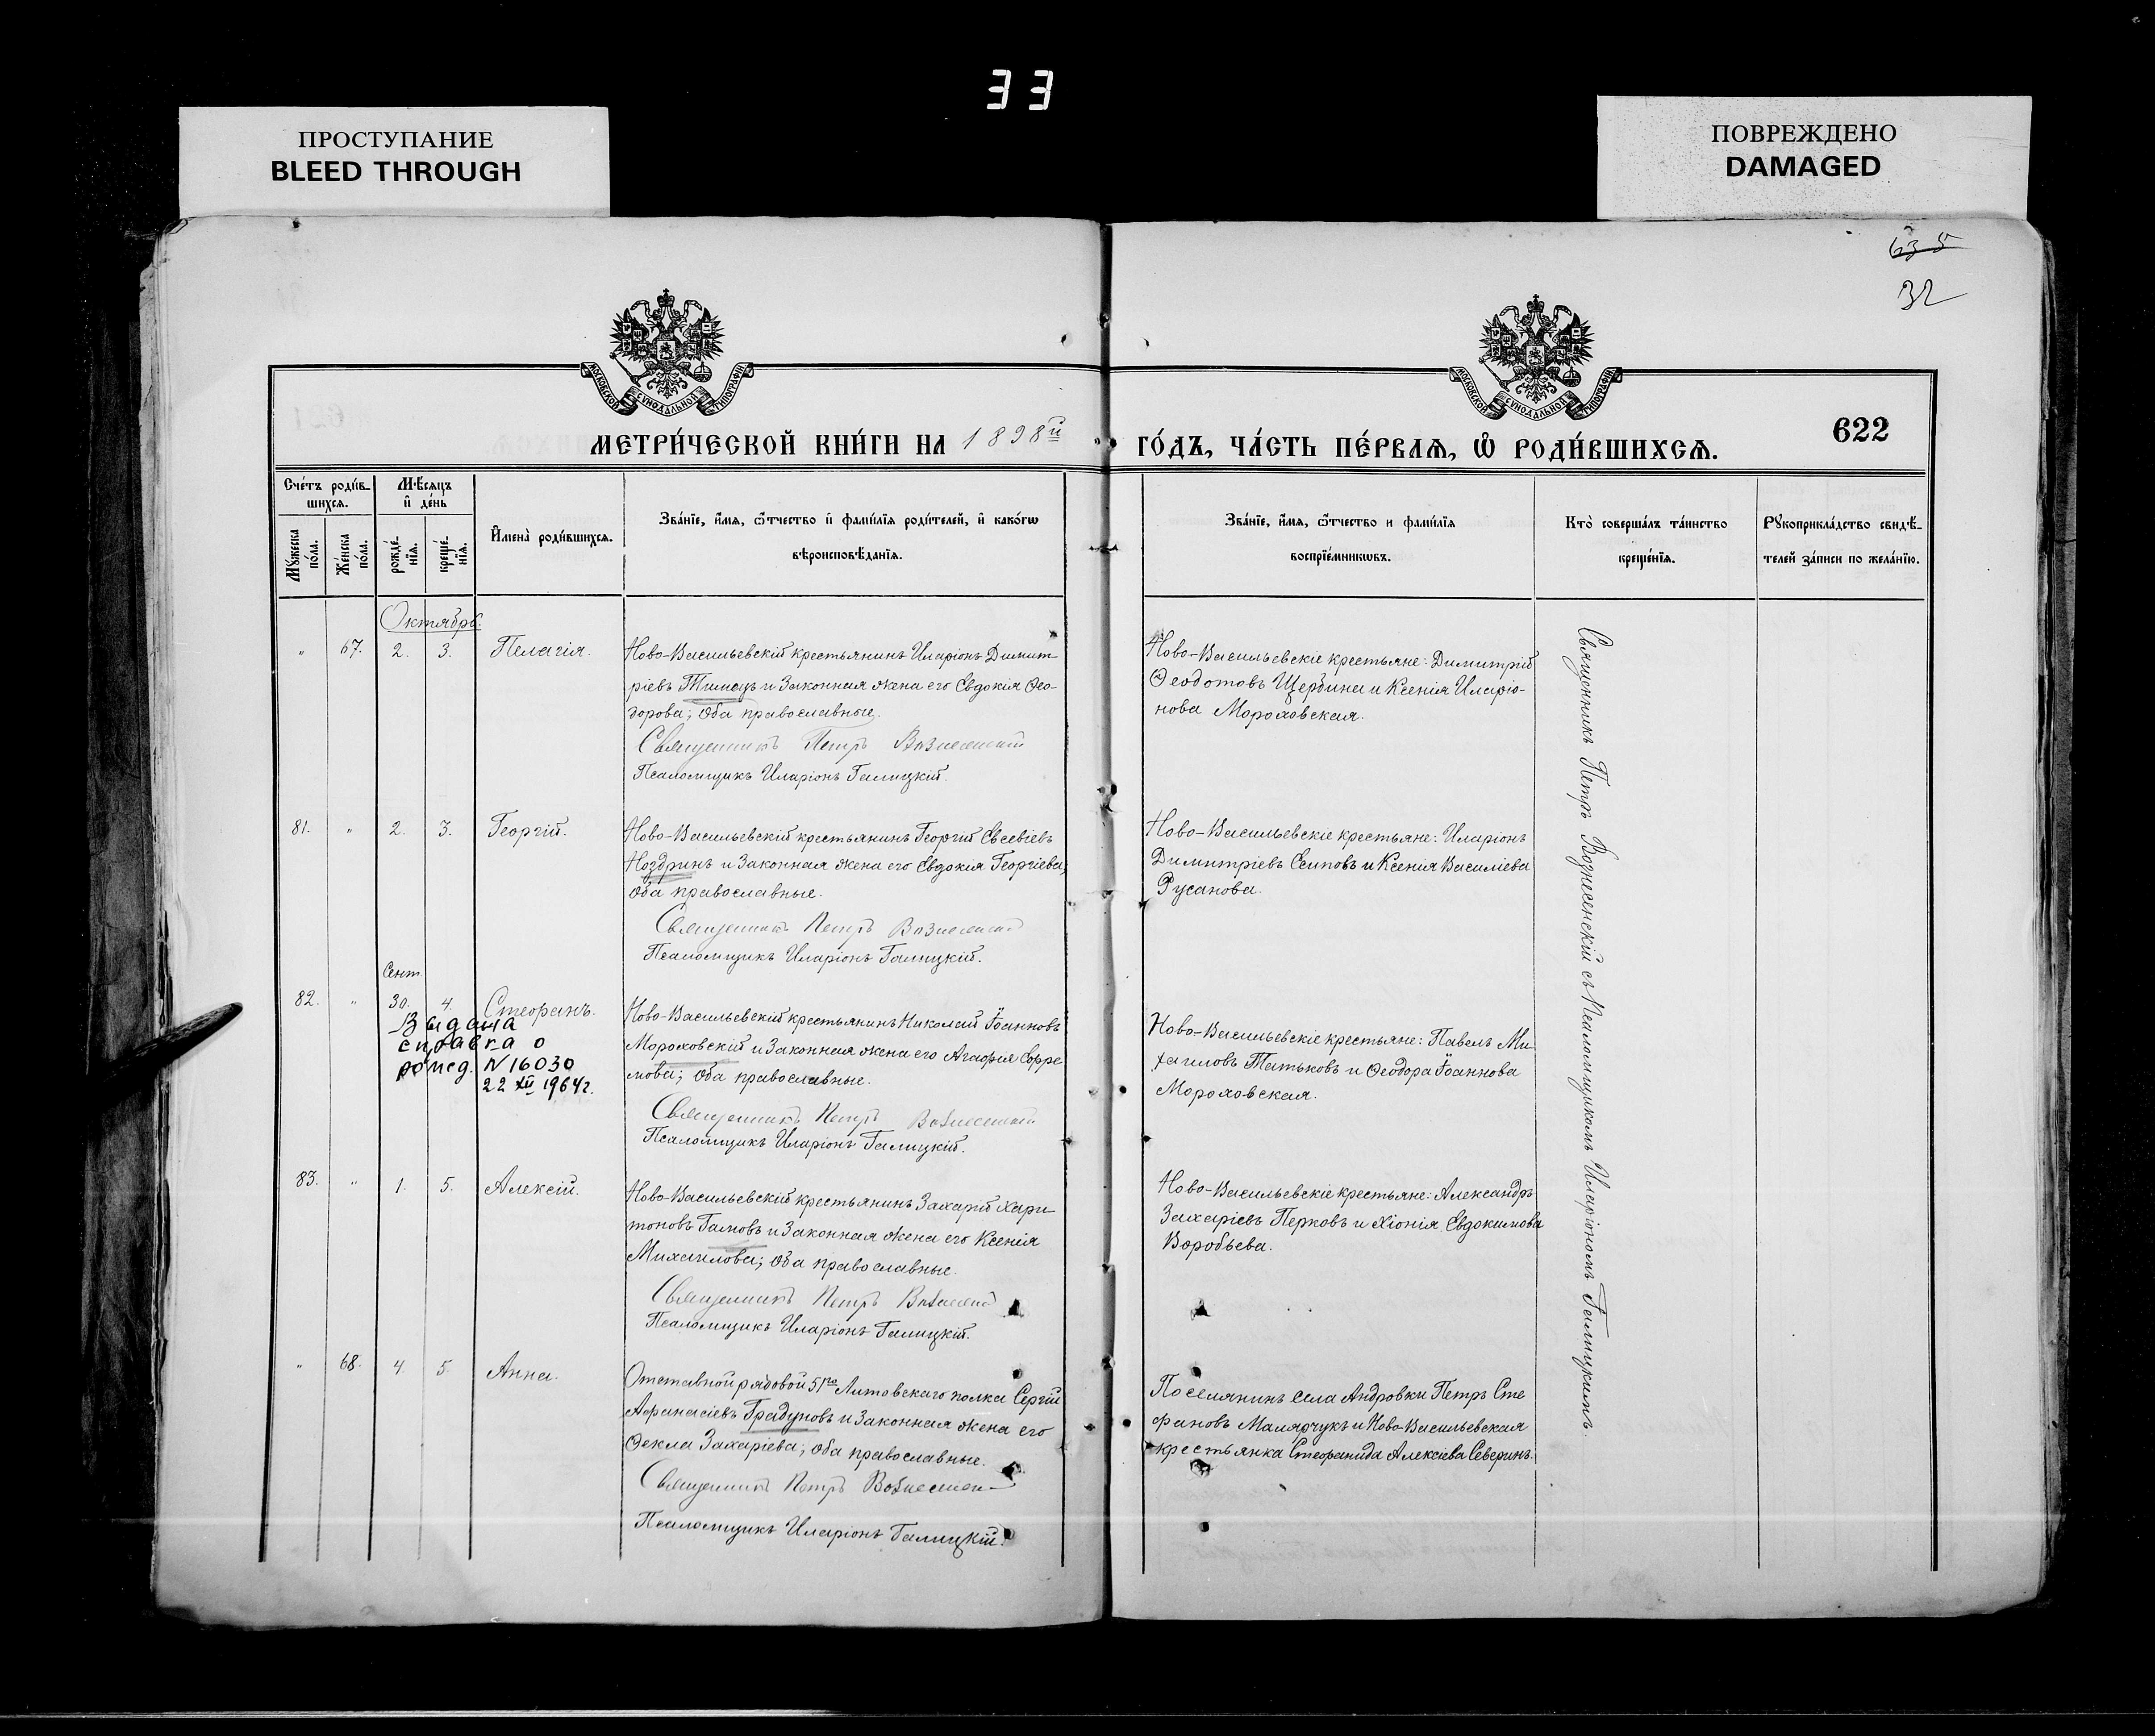 33
ПРОСТУПАНИЕ
BLEED THROUGH
ПОВРЕЖДЕНО
DAMAGED
635
32
МОСКОВСКОЙ СѴНОДАЛЬНОЙ ТИПОГРАФІИ
МОСКОВСКОЙ СѴНОДАЛЬНОЙ ТИПОГРАФІИ
622
МЕТРИ́ЧЕСКОЙ КНИ́ГИ НА 1898й
ГО́ДЪ, ЧА́СТЬ ПЕ́РВАѦ, Ѽ РОДИ́ВШИХСѦ.
Сче́тъ роди́в-
шихсѧ.
Мѣ́сѧцъ
и҆ де́нь
Мꙋ́жеска
по́ла.
Же́нска
по́ла.
рожде́-
нїѧ.
креще́-
нїѧ.
И҆мена̀ роди́вшихсѧ.
Зва́нїе, и҆́мѧ, ѻ҆́тчество и҆ фами́лїѧ роди́телей, и҆ како́гѡ
вѣроисповѣ́данїѧ.
Зва́нїе, и҆́мѧ, ѻ҆́тчество и фами́лїѧ
воспрїе́мникѡвъ.
Кто̀ соверша́лъ та́инство
креще́нїѧ.
Рꙋкоприкла́дство свидѣ́-
телей за́писи по жела́нїю.
Октябрь.
" 67. 2. 3. Пелагія.
Ново-Васильевскій крестьянинъ Иларіонъ Димит-
ріевъ Тимощ и законная жена его Евдокія Ѳео-
дорова; оба православные.
Священникъ Петръ Вознесенскій
Псаломщикъ Иларіонъ Галицкій.
Ново-Васильевскіе крестьяне: Димитрій
Ѳеодотовъ Щербина и Ксенія Иларіо-
нова Мороховская.
81. " 2. 3. Георгій.
Ново-Васильевскій крестьянинъ Георгій Евсевіевъ
Ноздринъ и законная жена его Евдокія Георгіева,
оба православные.
Священникъ Петръ Вознесенскій
Псаломщикъ Иларіонъ Галицкій.
Ново-Васильевскіе крестьяне: Иларіонъ
Димитріевъ Есиповъ и Ксенія Василіева
Русанова.
Сент.
82. " 30. 4. Стефанъ.
Видана
справка о
рожд. N 16030
22 XII 1964г.
Ново-Васильевскій крестьянинъ Николай Іоанновъ
Мороховскій и законная жена его Агафія Ефре
мова; оба православные.
Священникъ Петръ Вознесенскій
Псаломщикъ Иларіонъ Галицкій.
Ново-Васильевскіе крестьяне: Павелъ Ми
хаиловъ Татьковъ и Ѳеодора Іоаннова
Мороховская.
83. " 1. 5. Алексій.
Ново-Васильевскій крестьянинъ Захарій Хари
тоновъ Галновъ и законная жена его Ксенія
Михаилова; оба православные.
Священникъ Петръ Вознесенскій
Псаломщикъ Иларіонъ Галицкій.
Ново-Васильевскіе крестьяне: Александръ
Захаріевъ Перковъ и Хіонія Евдокимова
Воробьева.
" 68. 4 5. Анна.
Отставной рядовой 51го Литовскаго полка Сергій
Аѳанасіевъ Градуновъ и законная жена его
Ѳекла Захаріева; оба православные.
Священникъ Петръ Вознесенскій
Псаломщикъ Иларіонъ Галицкій.
Поселянинъ села Андровки Петръ Сте
фановъ Малярчукъ и Ново-Васильевская
крестьянка Стефанида Алексіева Северинъ.
Священникъ Петръ Вознесенскій съ Псаломщикомъ Иларіономъ Галицкимъ